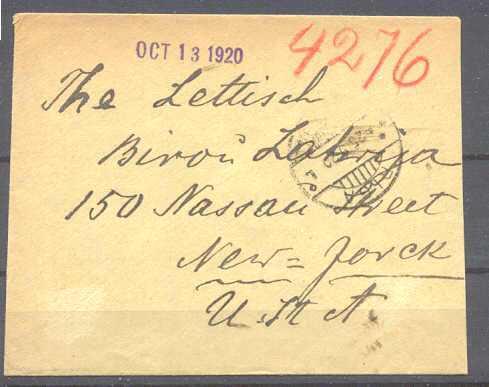 OCT 13 1920
4276
The Lettisch
Biroù Latwija
150 Nassau Street
New=Jorck
U. St A